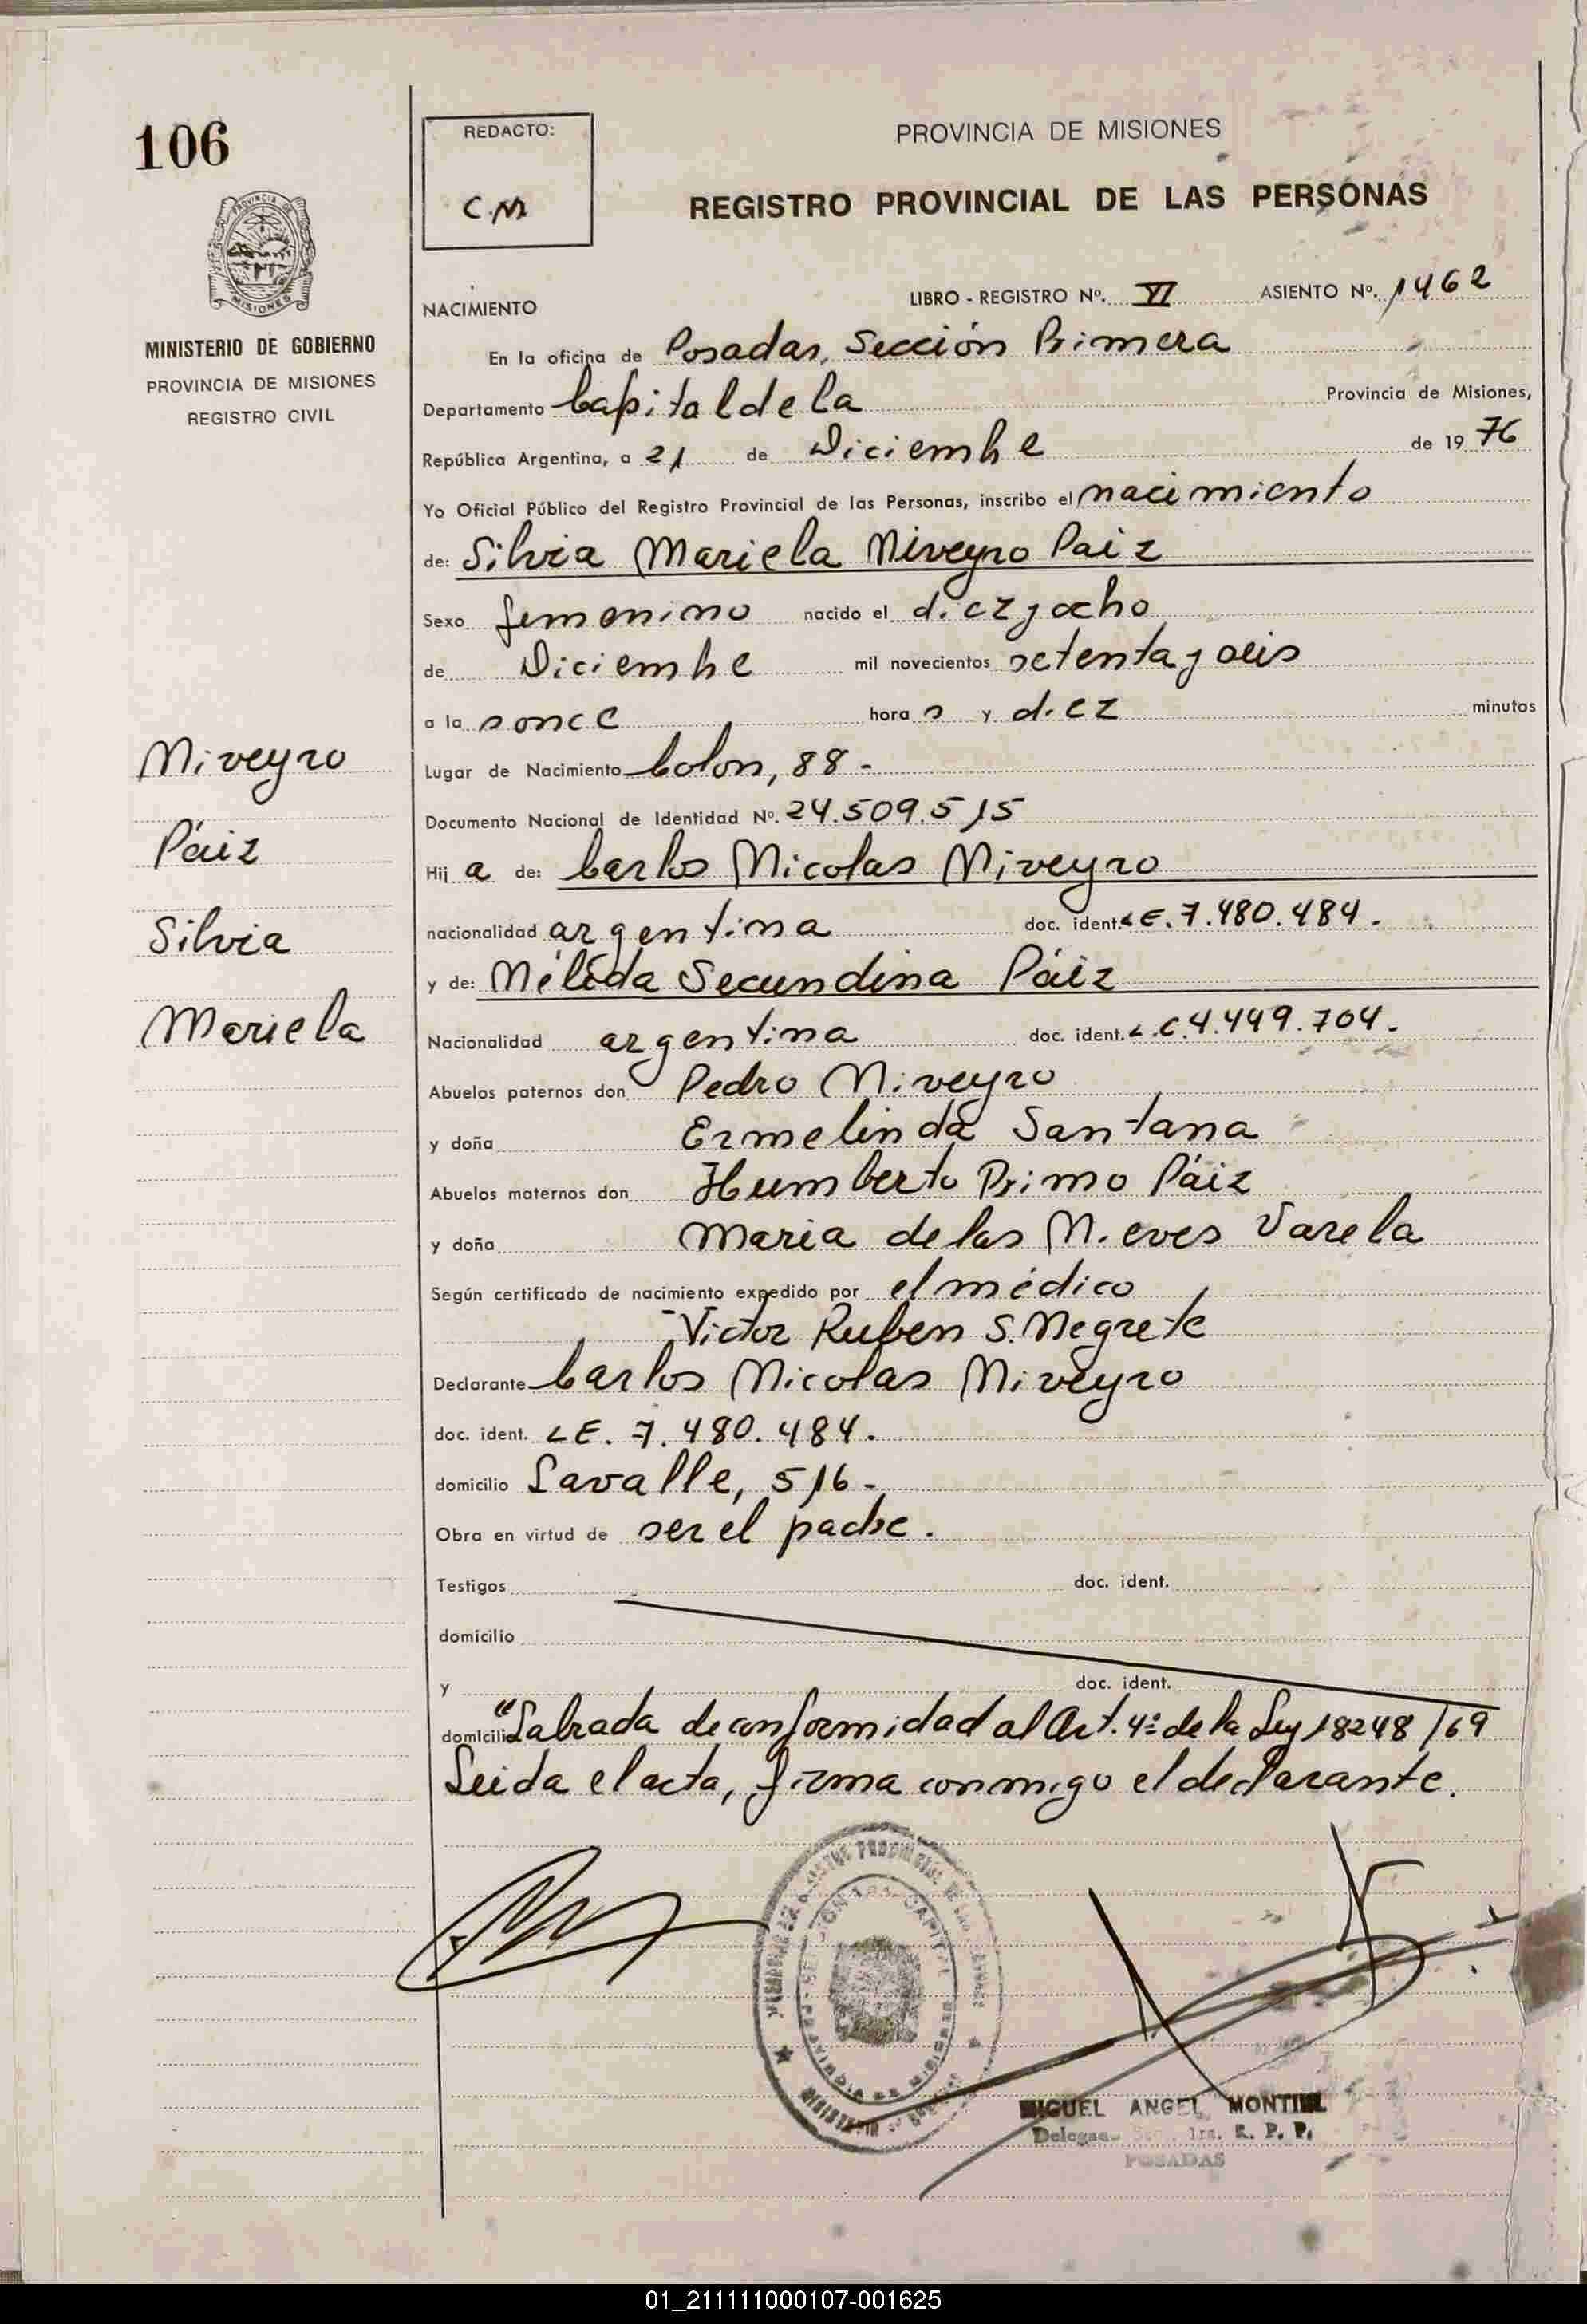 106
REDACTO:
C.M
PROVINCIA DE MISIONES
REGISTRO PROVINCIAL DE LAS PERSONAS
MINISTERIO DE GOBIERNO
PROVINCIA DE MISIONES
REGISTRO CIVIL
NACIMIENTO
LIBRO - REGISTRO Nº. VI ASIENTO Nº. 1462
En la oficina de Posadas, Sección Primera
Departamento Capital de la Provincia de Misiones,
República Argentina, a 21 de Diciembre de 1976
Yo Oficial Público del Registro Provincial de las Personas, inscribo el nacimiento
de: Silvia Mariela Niveyro Paiz
Sexo femenino nacido el diez y ocho
de Diciembre mil novecientos setenta y seis
a la s once hora s y diez minutos
Niveyro
Páiz
Silvia
Mariela
Lugar de Nacimiento Colon, 88 -
Documento Nacional de Identidad Nº. 24.509.515
Hij a de: Carlos Nicolas Niveyro
nacionalidad argentina doc. ident. LE. 7.480.484.
y de: Nélida Secundina Páiz
Nacionalidad argentina doc. ident. L.C 4.449.704.
Abuelos paternos don Pedro Niveyro
y doña Ermelinda Santana
Abuelos maternos don Humberto Primo Páiz
y doña Maria de las Nieves Varela
Según certificado de nacimiento expedido por el médico
Victor Ruben S. Negrete
Declarante Carlos Nicolas Niveyro
doc. ident. LE. 7.480.484.
domicilio Lavalle, 516 -
Obra en virtud de ser el padre.
Testigos doc. ident.
domicilio
y doc. ident.
domicilio "Labrada de conformidad al Art. 4º de la Ley 18248/69
Leida el acta, firma conmigo el declarante.
MIGUEL ANGEL MONTIEL
1ra. R. P. P.
POSADAS
01_211111000107-001625